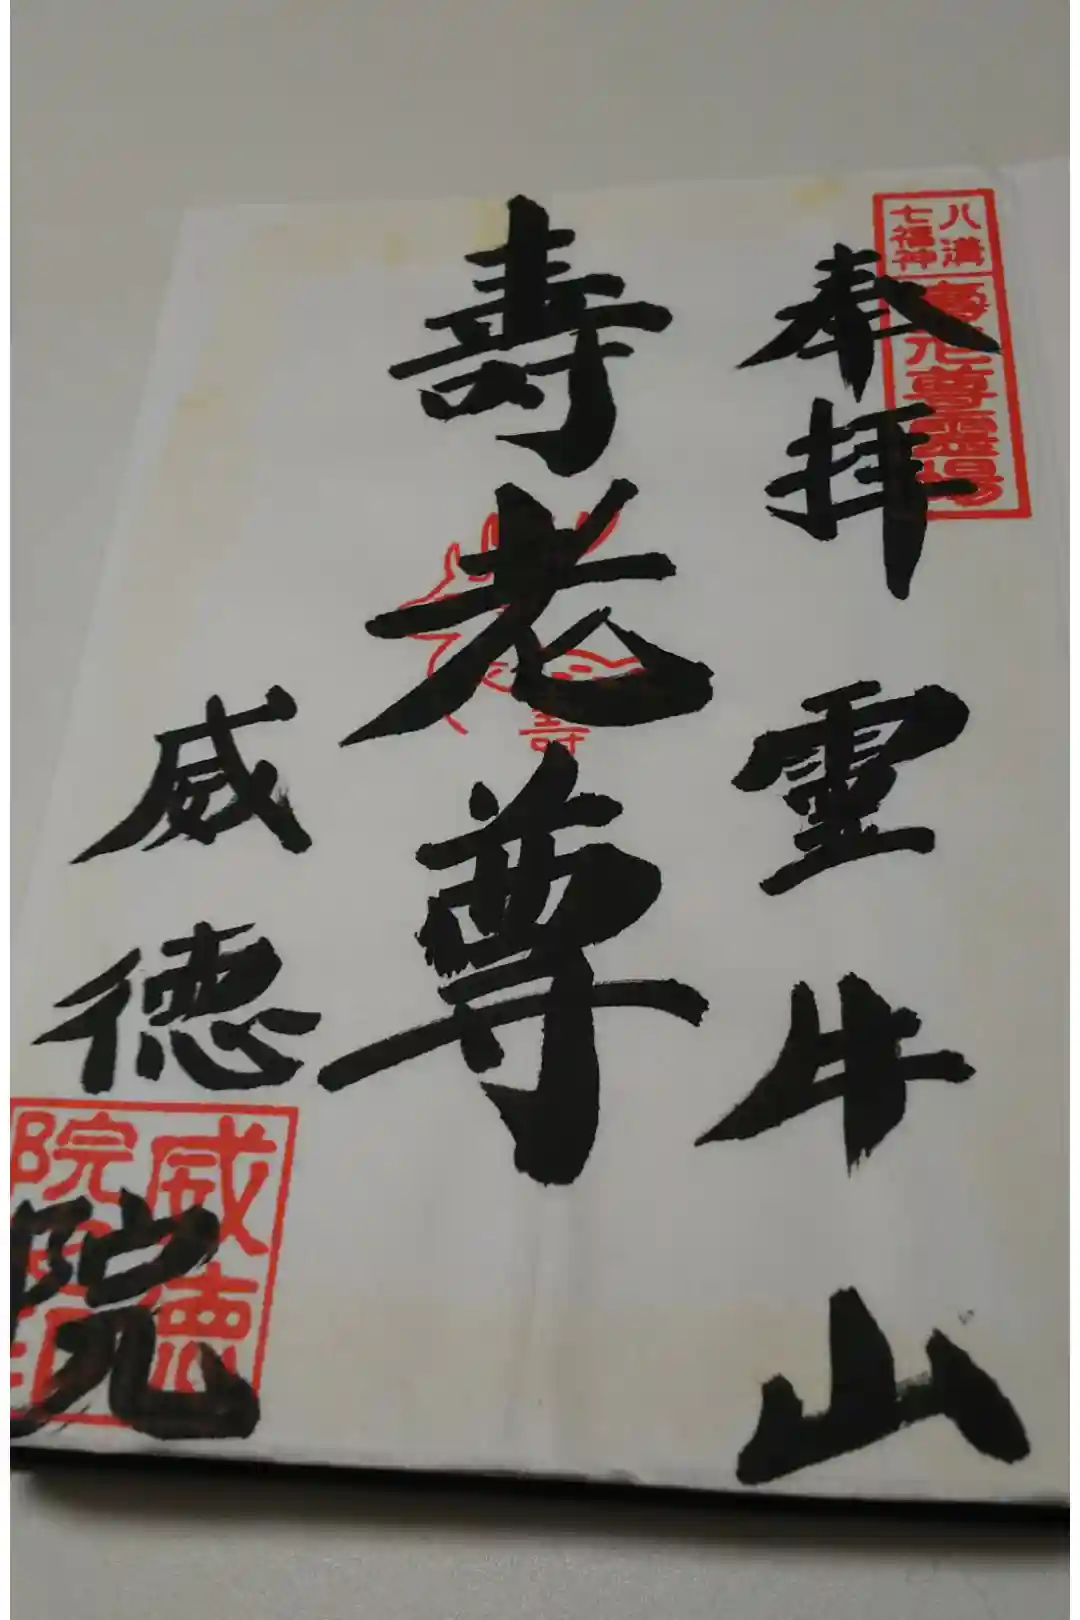 奉拝 霊牛山
八溝
七福神
寿老尊霊場
壽老尊
壽
威徳院
威徳
院